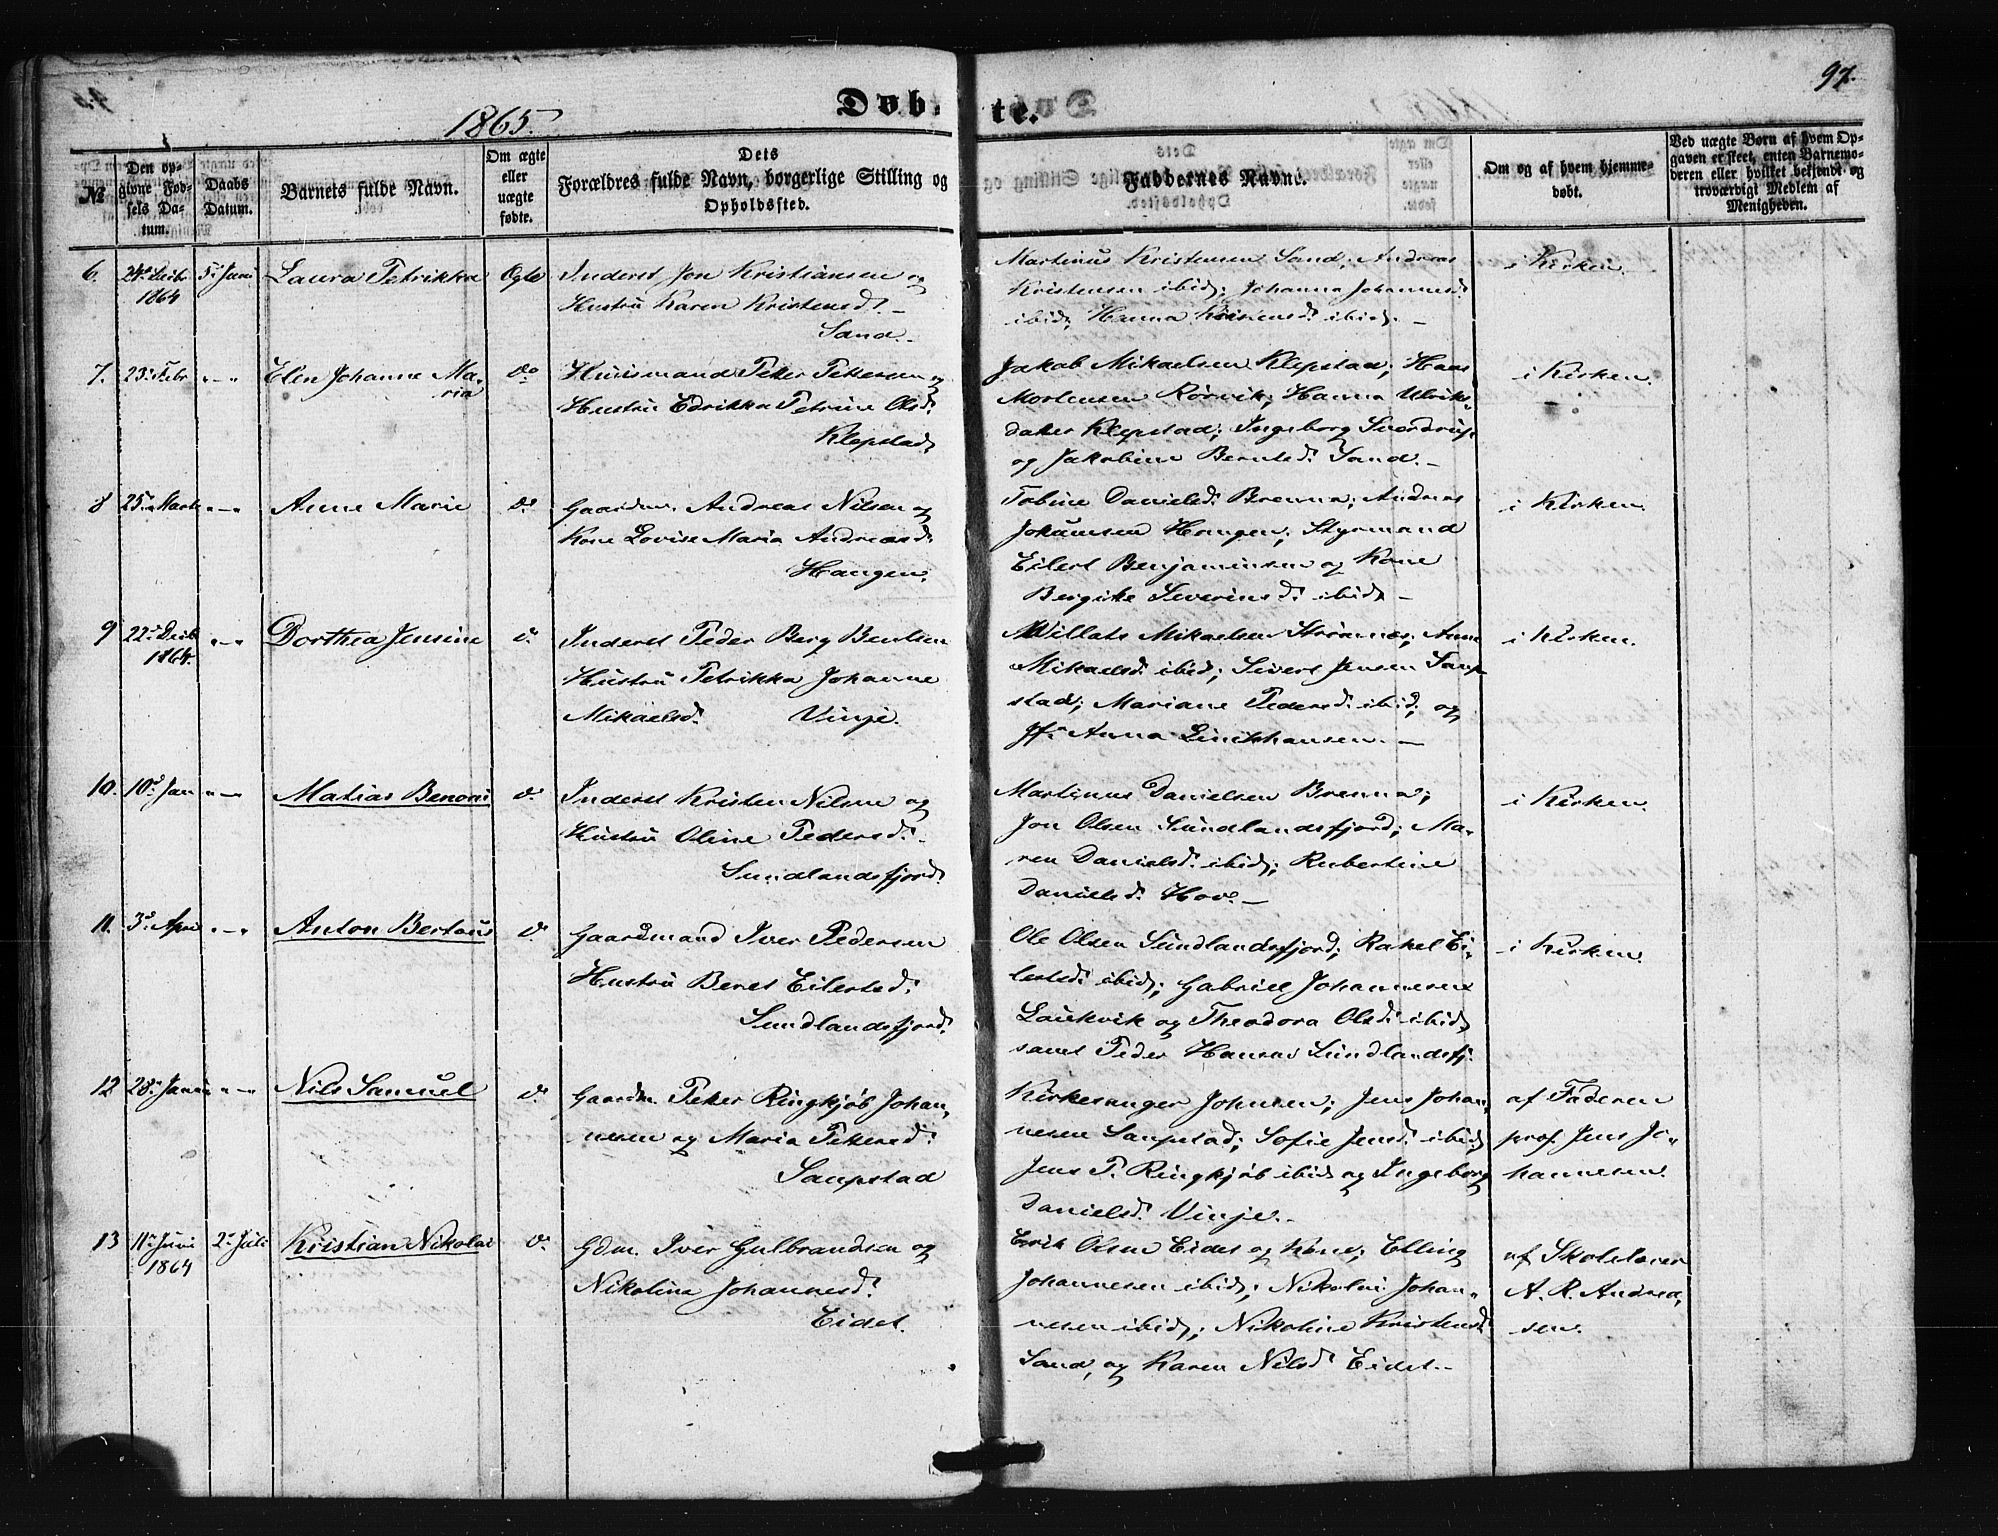 97.
1865.
Døbte.
№
Den opgivne Fødsels Datum.
Daabs Datum.
Barnets fulde Navn.
Om ægte eller uægte fødte.
Dets Forældres fulde Navn, borgerlige Stilling og Opholdssted.
Faddernes Navne.
Om og af hvem hjemmedøbt.
Ved uægte Børn af hvem Opgaven er skeet, enten Barnemoderen eller hvilket bekjendt og troværdigt Medlem af Menigheden.
6. 24de 1864 5t Juni Laura Petrikka Ægte
Inderst Jon Kristiansen og
Hustru Karen Kristensd. –
Sand.
Martinus Kristensen Sand; Andreas
Kristensen ibid; Johanna Johannesd.
ibid; Hanna Kristensd. ibid. –
i Kirken.
7. 23. Febr „–„ Elen Johanne Maria do
Huusmand Peter Pettersen og
Hustru Edrikka Petrine Olsd.
Klepstad.
Jakob Mikaelsen Klepstad; Hans
Mortensen Rørvik; Hanna Ulriks-
dater Klepstad; Ingeborg Sverdrup
og Jakobine Berntsd. Sand. –
i Kirken.
8 25. Marts „–„ Anne Marie do
Gaardm. Andreas Nilsen og
Kone Lovise Maria Andreasd.
Haugen.
Tobine Danielsd. Brenna; Andreas
Johansen Haugen; Styrmand
Eilert Benjaminsen og Kone
Bergitte Severinsd. ibid. –
i Kirken.
9 22. Decb 1864. „–„ Dorthea Jensine do
Inderst Peder Berg Bentsen
Hustru Petrikka Johanne
Mikaelsd. Vinje.
Willats Mikaelsen Strømnes; Anne
Mikaelsd. ibid; Sivert Jensen Saup-
stad; Mariane Pedersd. ibid; og
Jfr. Anna
i Kirken.
10. 10d Jan „–„ Matias Benoni do
Inderst Kristen Nilsen og
Hustru Oline Pedersd.
Sundlandsfjord.
Martinus Danielsen Brenna;
Jon Olsen Sundlandsfjord; Ma-
ren Danielsd. ibid; Rubertine
Danielsd. Hov. –
i Kirken.
11. 3d April „–„ Anton Bertous do
Gaardmand Iver Pedersen
Hustru Beret Eilertsd.
Sundlandsfjord.
Ole Olsen Sundlandsfjord; Rakel Ei-
lertsd. ibid; Gabriel Johannesen
Laukvik og Theodora Olsd. ibid,
samt Peder Hansen Sundlandsfj.
i Kirken.
12 28. „–„ Nils Samuel do
Gaardm. Peter Ringkjøb Johan-
nesen og Maria Pettersd.
Saupstad
Kirkesanger Johnsen; Jens Johan-
nesen Saupstad; Sofie Jensd. ibid;
Jens P. Ringkjøb ibid og Ingeborg
Danielsd. Vinje. –
af Faderen
prof. Jens Jo-
hannesen.
13 11. Juni 1864 2. Juli Kristian Nikolai do
Gdm. Iver Gulbrandsen og
Nikoline Johannesd.
Eidet.
Erik Olsen Eidet og Kone; Elling
Johannesen ibid; Nikolai Johan-
nesen ibid; Nikoline Kristensd.
Sand, og Karen Nilsd. Eidet. –
af Skolelærer
A. R. Andrea-
sen.